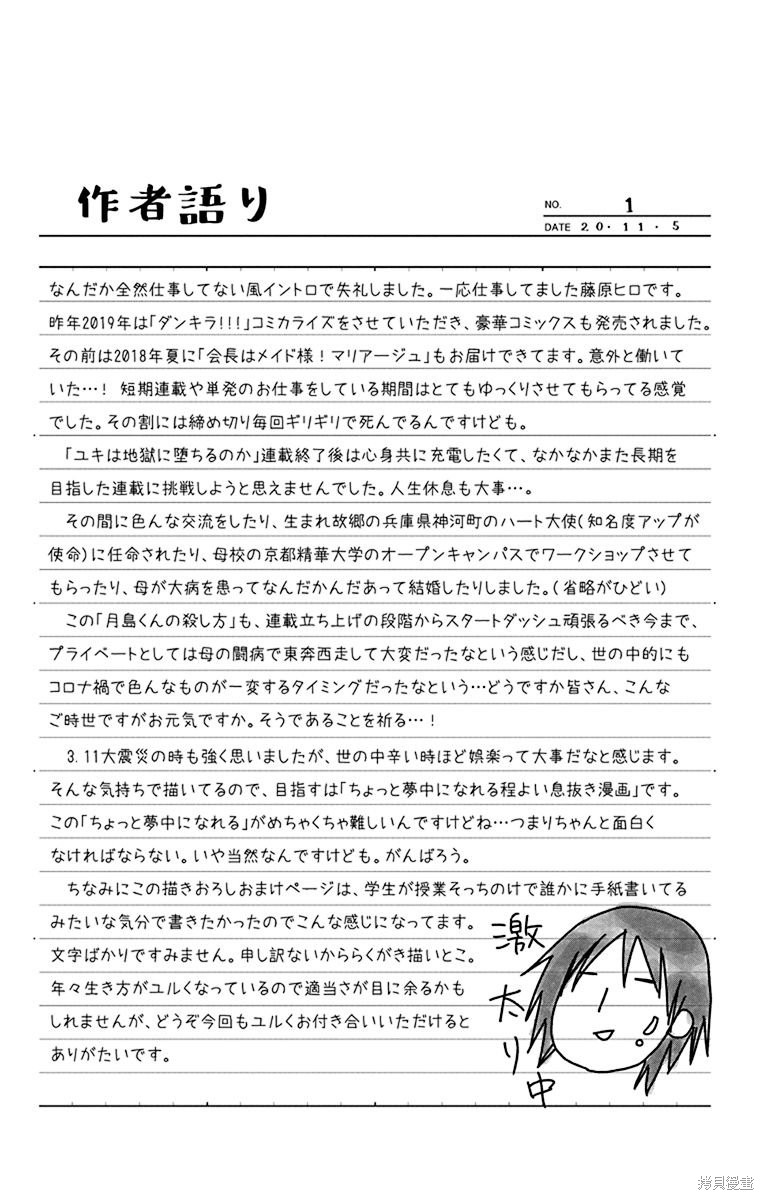 作者語り
NO. 1
DATE 20・11・5
なんだか全然仕事してない風イントロで失礼しました。一応仕事してました藤原ヒロです。
昨年2019年は「ダンキラ!!!」コミカライズをさせていただき、豪華コミックスも発売されました。
その前は2018年夏に「会長はメイド様!マリアージュ」もお届けできてます。意外と働いて
いた…! 短期連載や単発のお仕事をしている期間はとてもゆっくりさせてもらってる感覚
でした。その割には締め切り毎回ギリギリで死んでるんですけども。
「ユキは地獄に堕ちるのか」連載終了後は心身共に充電したくて、なかなかまた長期を
目指した連載に挑戦しようと思えませんでした。人生休息も大事…。
その間に色んな交流をしたり、生まれ故郷の兵庫県神河町のハート大使(知名度アップが
使命)に任命されたり、母校の京都精華大学のオープンキャンパスでワークショップさせて
もらったり、母が大病を患ってなんだかんだあって結婚したりしました。(省略がひどい)
この「月島くんの殺し方」も、連載立ち上げの段階からスタートダッシュ頑張るべき今まで、
プライベートとしては母の闘病で東奔西走して大変だったなという感じだし、世の中的にも
コロナ禍で色んなものが一変するタイミングだったなという…どうですか皆さん、こんな
ご時世ですがお元気ですか。そうであることを祈る…!
3.11大震災の時も強く思いましたが、世の中辛い時ほど娯楽って大事だなと感じます。
そんな気持ちで描いてるので、目指すは「ちょっと夢中になれる程よい息抜き漫画」です。
この「ちょっと夢中になれる」がめちゃくちゃ難しいんですけどね…つまりちゃんと面白く
なければならない。いや当然なんですけども。がんばろう。
ちなみにこの描きおろしおまけページは、学生が授業そっちのけで誰かに手紙書いてる
みたいな気分で書きたかったのでこんな感じになってます。
文字ばかりですみません。申し訳ないかららくがき描いとこ。
年々生き方がユルくなっているので適当さが目に余るかも
しれませんが、どうぞ今回もユルくお付き合いいただけると
ありがたいです。
激太り中
拷貝漫畫